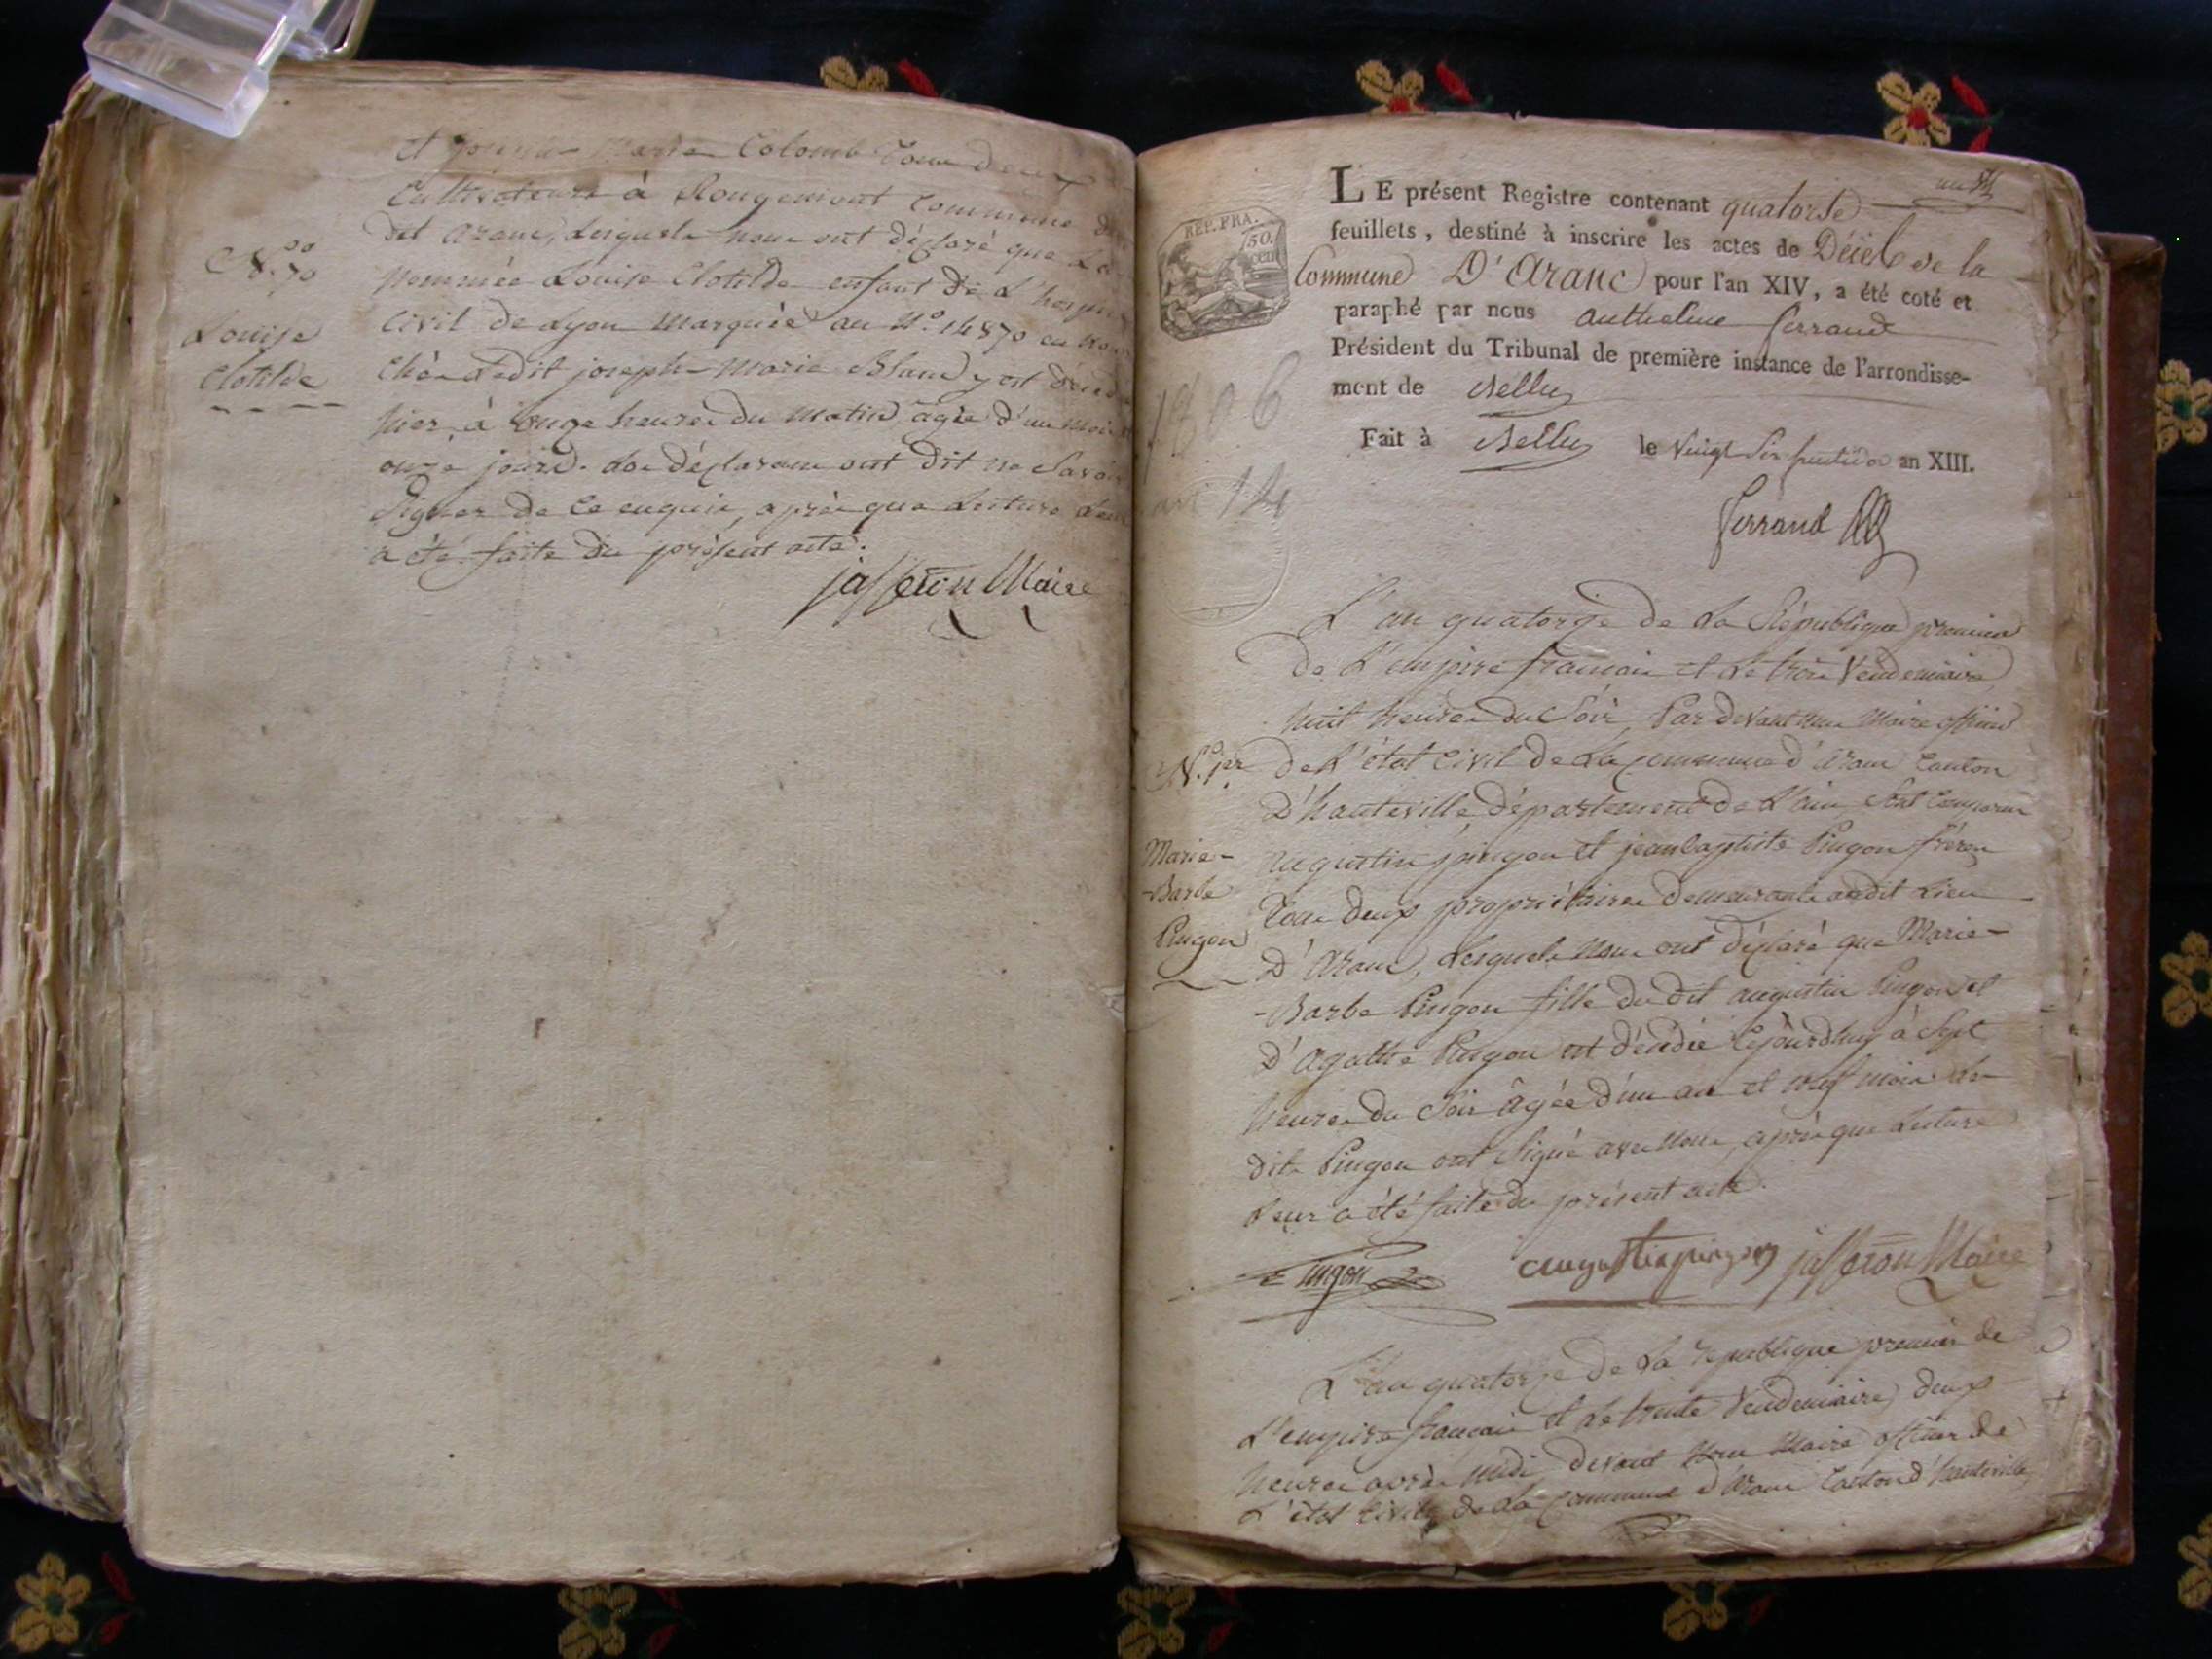 et joseph Marie Colomb tous deux
Cultivateurs à Rougemont Commune
dit Aranc, lesquels nous ont déclaré que La
N.º 70
nommée Louise Clotilde enfant de L'hospice
Louise
Civil de Lyon Marquée au N.º 14870 en
Clotilde
chès Ledit joseph Marie Blanc y est décédé
hier, à onze heures du matin, agée d'un mois
onze jours. Les déclarans ont dit ne Savoir
Signer de ce enquis, après que Lecture Leur
a été faite du présent acte.
jasseron Maire
LE présent Registre contenant quatorse
feuillets, destiné à inscrire les actes de Décès de la
REP. FRA.
50.
cent
Commune D'Aranc pour l'an XIV, a été coté et
paraphé par nous anthelme ferrand
Président du Tribunal de première instance de l'arrondisse-
ment de Belley
1806
Fait à Belley le Vingt Six fructidor an XIII.
an 14
ferrand
L'an quatorze de La République premier
de L'empire francais et Le trois Vendemiaire,
huit heures du Soir, Par devant nous Maire officier
N.º 1er
de L'état Civil de La Commune d'Aranc Canton
D'hauteville, département de L'ain, Sont Comparus
Marie-
augustin pingon et jean baptiste Pingon frères
-Barbe
Tous deux propriétaires demeurants audit Lieu
Pingon
D'Aranc, Lesquels Nous ont déclaré que Marie-
-Barbe Pingon fille du dit augustin Pingon et
D'Agathe Pingon est décédée Cejourdhuy à Sept
heures du Soir âgée d'un an et neuf mois Les
dits Pingon ont Signé avec Nous, après que Lecture
Leur a été faite du présent acte.
Pingon augustin pingon jasseron Maire
L'an quatorze de La république premier de
L'empire francais et Le trente Vendemiaire, deux
heures après midi, devant Nous Maire officier de
L'état Civile de La Commune d'Aranc Canton d'hauteville,